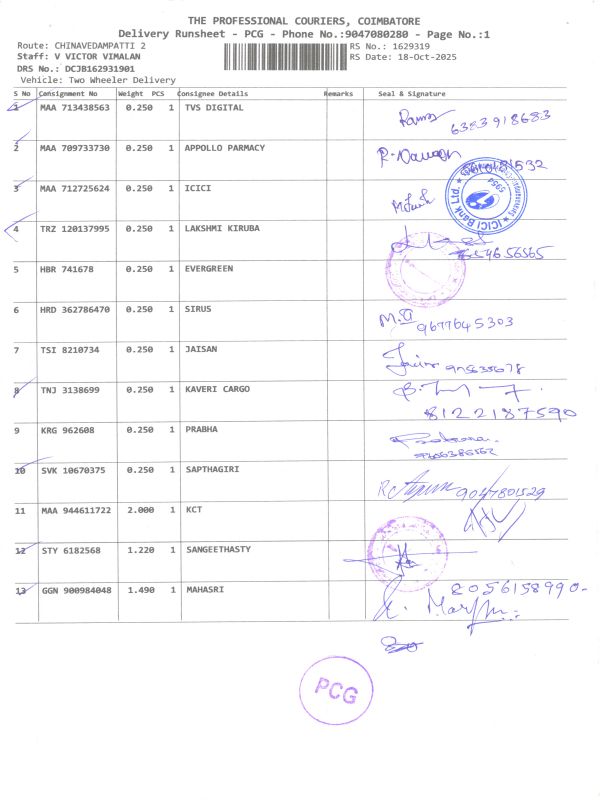 THE PROFESSIONAL COURIERS, COIMBATORE
Delivery Runsheet - PCG - Phone No.:9047080280 - Page No.:1
Route: CHINAVEDAMPATTI 2 RS No.: 1629319
Staff: V VICTOR VIMALAN RS Date: 18-Oct-2025
DRS No.: DCJB162931901
Vehicle: Two Wheeler Delivery
S No Consignment No Weight PCS Consignee Details Remarks Seal & Signature
1 MAA 713438563 0.250 1 TVS DIGITAL
6383918683
2 MAA 709733730 0.250 1 APPOLLO PARMACY
3 MAA 712725624 0.250 1 ICICI
ICICI Bank Ltd.
4 TRZ 120137995 0.250 1 LAKSHMI KIRUBA
5 HBR 741678 0.250 1 EVERGREEN
6 HRD 362786470 0.250 1 SIRUS
9677645303
7 TSI 8210734 0.250 1 JAISAN
8 TNJ 3138699 0.250 1 KAVERI CARGO
8122187590
9 KRG 962608 0.250 1 PRABHA
10 SVK 10670375 0.250 1 SAPTHAGIRI
9047801529
11 MAA 944611722 2.000 1 KCT
12 STY 6182568 1.220 1 SANGEETHASTY
13 GGN 900984048 1.490 1 MAHASRI
8056158990-
PCG